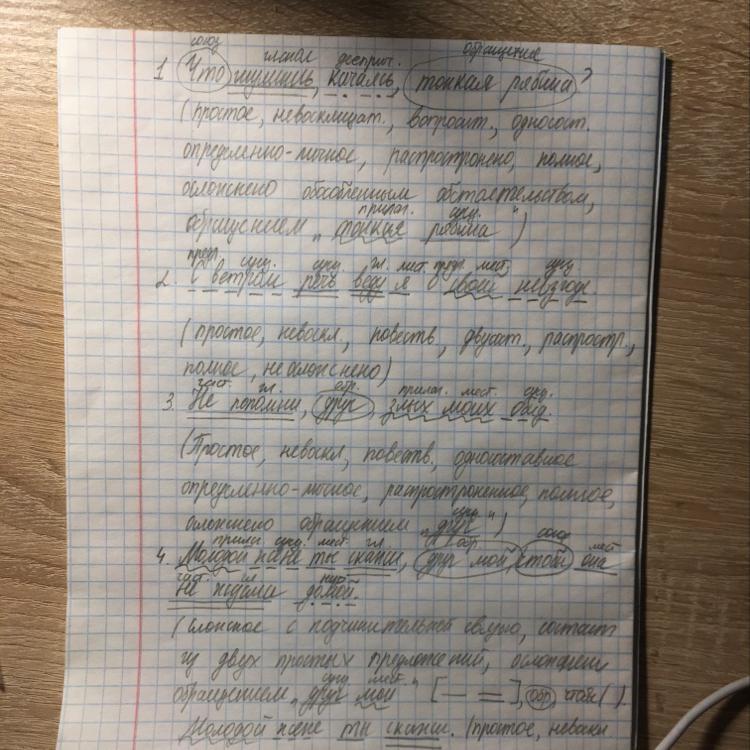 союз глагол дееприч. обращение
1 Что шумишь, качаясь, тонкая рябина?
(простое, невосклицат., вопросит., односост.
определенно-личное, распростронено, полное,
осложнено обособленным обстоятельством,
прилаг. сущ.
обращением „тонкая рябина")
предл. сущ. сущ. гл. мест. предл. мест. сущ.
2. С ветром речь веду я о своей невзгоде.
(простое, невоскл., повеств, двусост., распростр.,
полное, не осложнено)
част. гл. обр. прилаг. мест. сущ.
3. Не попомни, друг злых моих обид.
(Простое, невоскл, повеств., односоставное
определенно-личное, распростроненное, полное,
сущ.
осложнено обращением „друг")
прилаг. сущ. мест. гл. обр. союз мест
4. Молодой жене ты скажи, друг мой, чтобы она
част. гл нар.
не ждала домой.
(сложное с подчинительной связью, состоит
из двух простых предложений, осложнен
сущ мест.
обращением „друг мой" [— =], обр, чтобы ( ).
Молодой жене ты скажи. (простое, невоскл